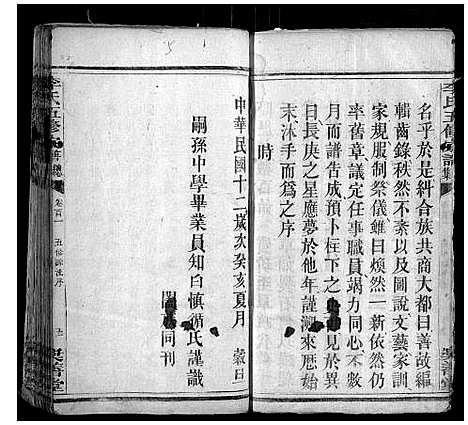 名乎於是糾合族共商大都曰善故編
輯齒錄秩然不紊以及圖說文藝家訓
家規服制祭儀雖曰煥然一新依然仍
率舊章議定任事職員竭力同心不數
月而譜告成預卜枉下之 見於異
日長庚之星應夢於他年謹溯來歷始
末沐手而爲之序
時
中華民國十二歲次癸亥夏月 穀旦
嗣孫中學畢業員知白慎脩氏謹識
同刊
李氏五修
卷首
五修譜序